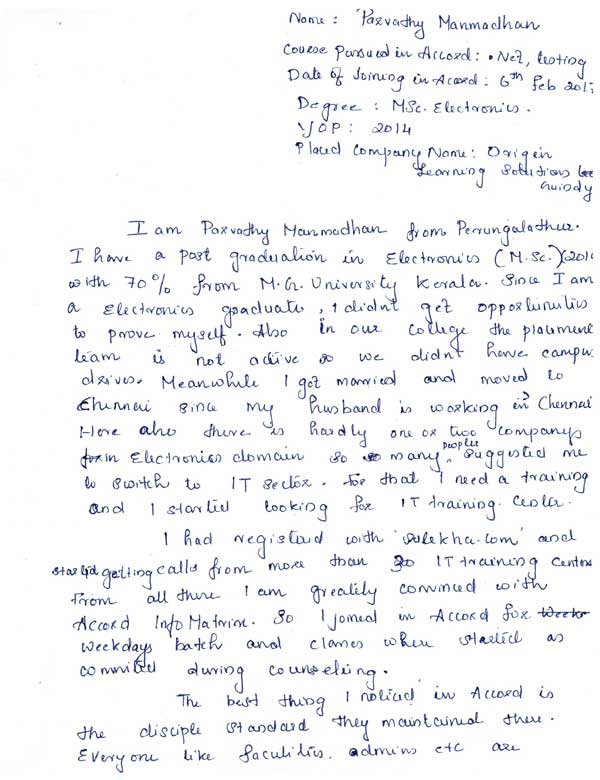 Name : Parvathy Manmadhan
Course Pursued in Accord : .Net, testing
Date of Joining in Accord : 6th Feb 201
Degree : MSc. Electronics.
YOP : 2014
Placed Company Name : Origin
Learning Solutions
Guindy
I am Parvathy Manmadhan from Perrungalathur.
I have a post graduation in Electronics (M.Sc.) (201
with 70% from M.G. University Kerala. Since I am
a Electronics graduate, I didnt get opportunities
to prove myself. Also in our college the placement
team is not active so we didnt have campu
drives. Meanwhile I got married and moved to
Chennai since my husband is working in Chennai
Here also there is hardly one or two companys
in Electronics domain so many peoples suggested me
to switch to IT sector. For that I need a training
and I started looking for IT training center.
I had registed with 'sulekha.com' and
started getting calls from more than 30 IT training centers
From all there I am greatily convinced with
Accord Info Matrix. So I joined in Accord for
weekdays batch and classes where started as
commited during counseling.
The best thing I noticed in Accord is
the disciple standard they maintained there.
Everyone like faculities, admins etc are